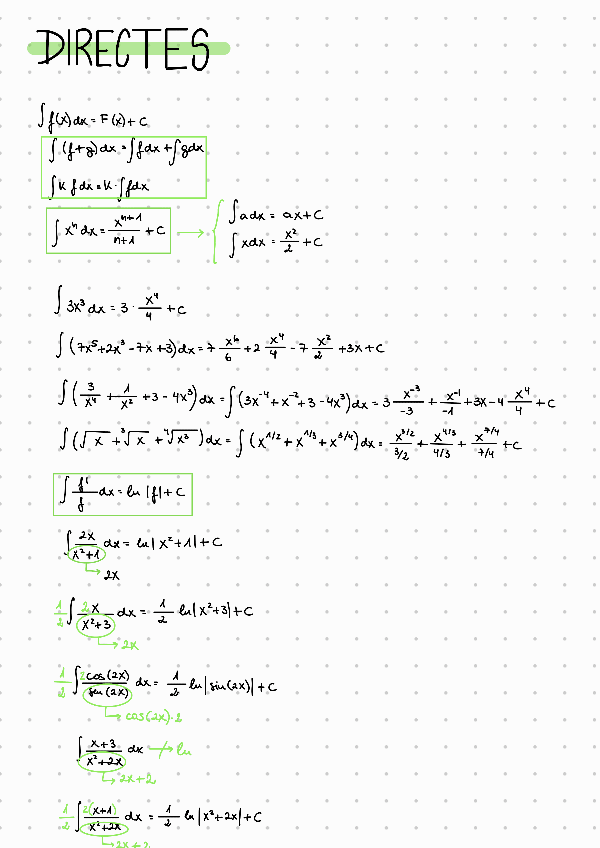 DIRECTES
∫ f(x) dx = F(x) + C
∫ (f+g) dx = ∫ f dx + ∫ g dx
∫ K f dx = K · ∫ f dx
∫ xⁿ dx = xⁿ⁺¹/(n+1) + C → { ∫ a dx = ax + C
∫ x dx = x²/2 + C
∫ 3x³ dx = 3 · x⁴/4 + C
∫ (7x⁵ + 2x³ - 7x + 3) dx = 7 x⁶/6 + 2 x⁴/4 - 7 x²/2 + 3x + C
∫ (3/x⁴ + 1/x² + 3 - 4x³) dx = ∫ (3x⁻⁴ + x⁻² + 3 - 4x³) dx = 3 x⁻³/-3 + x⁻¹/-1 + 3x - 4 x⁴/4 + C
∫ (√x + ³√x + ⁴√x³) dx = ∫ (x^1/2 + x^1/3 + x^3/4) dx = x^3/2/3/2 + x^4/3/4/3 + x^7/4/7/4 + C
∫ f'/f dx = ln |f| + C
∫ 2x/(x²+1) dx = ln |x²+1| + C
→ 2x
1/2 ∫ 2x/(x²+3) dx = 1/2 ln |x²+3| + C
→ 2x
1/2 ∫ 2cos(2x)/sin(2x) dx = 1/2 ln |sin(2x)| + C
→ cos(2x)·2
∫ (x+3)/(x²+2x) dx ↛ ln
→ 2x+2
1/2 ∫ 2(x+1)/(x²+2x) dx = 1/2 ln |x²+2x| + C
→ 2x+2